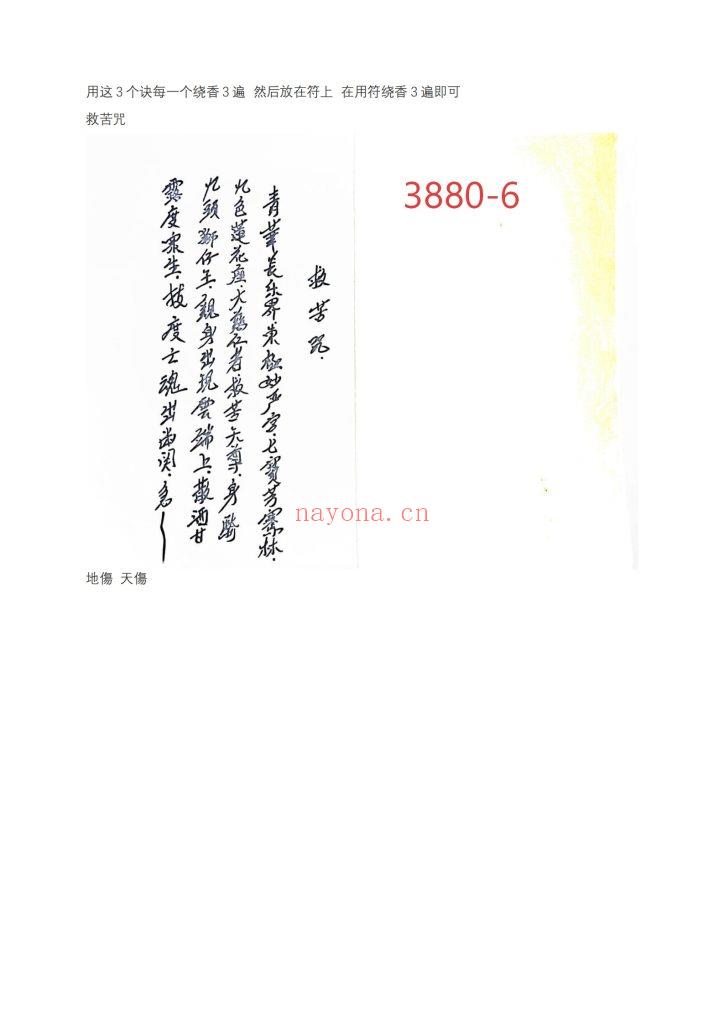 用这3个诀每一个绕香3遍 然后放在符上 在用符绕香3遍即可
救苦咒
3880-6
救苦咒.
青華長乐界.东极妙严宫.七寶芳骞林.
九色蓮花座.大慈仁者.救苦天尊.身騎
九頭獅仔上.親身出現雲端上.散洒甘
露度眾生.拔度亡魂出幽関.急
nayona.cn
地傷 天傷